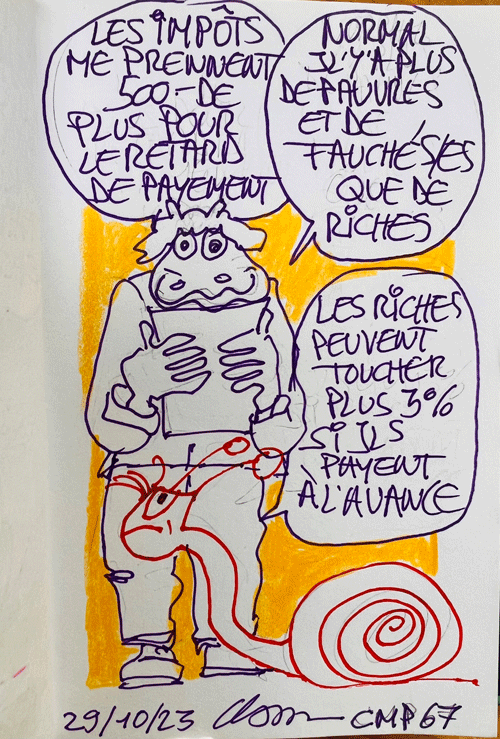 LES IMPÔTS
ME PRENNENT
500.- DE
PLUS POUR
LE RETARD
DE PAYEMENT
NORMAL
IL'Y'A PLUS
DE PAUVRES
ET DE
FAUCHÉS/ES
QUE DE
RICHES
LES RICHES
PEUVENT
TOUCHER
PLUS 3%
SI ILS
PAYENT
À L'AVANCE
29/10/23
CMP 67